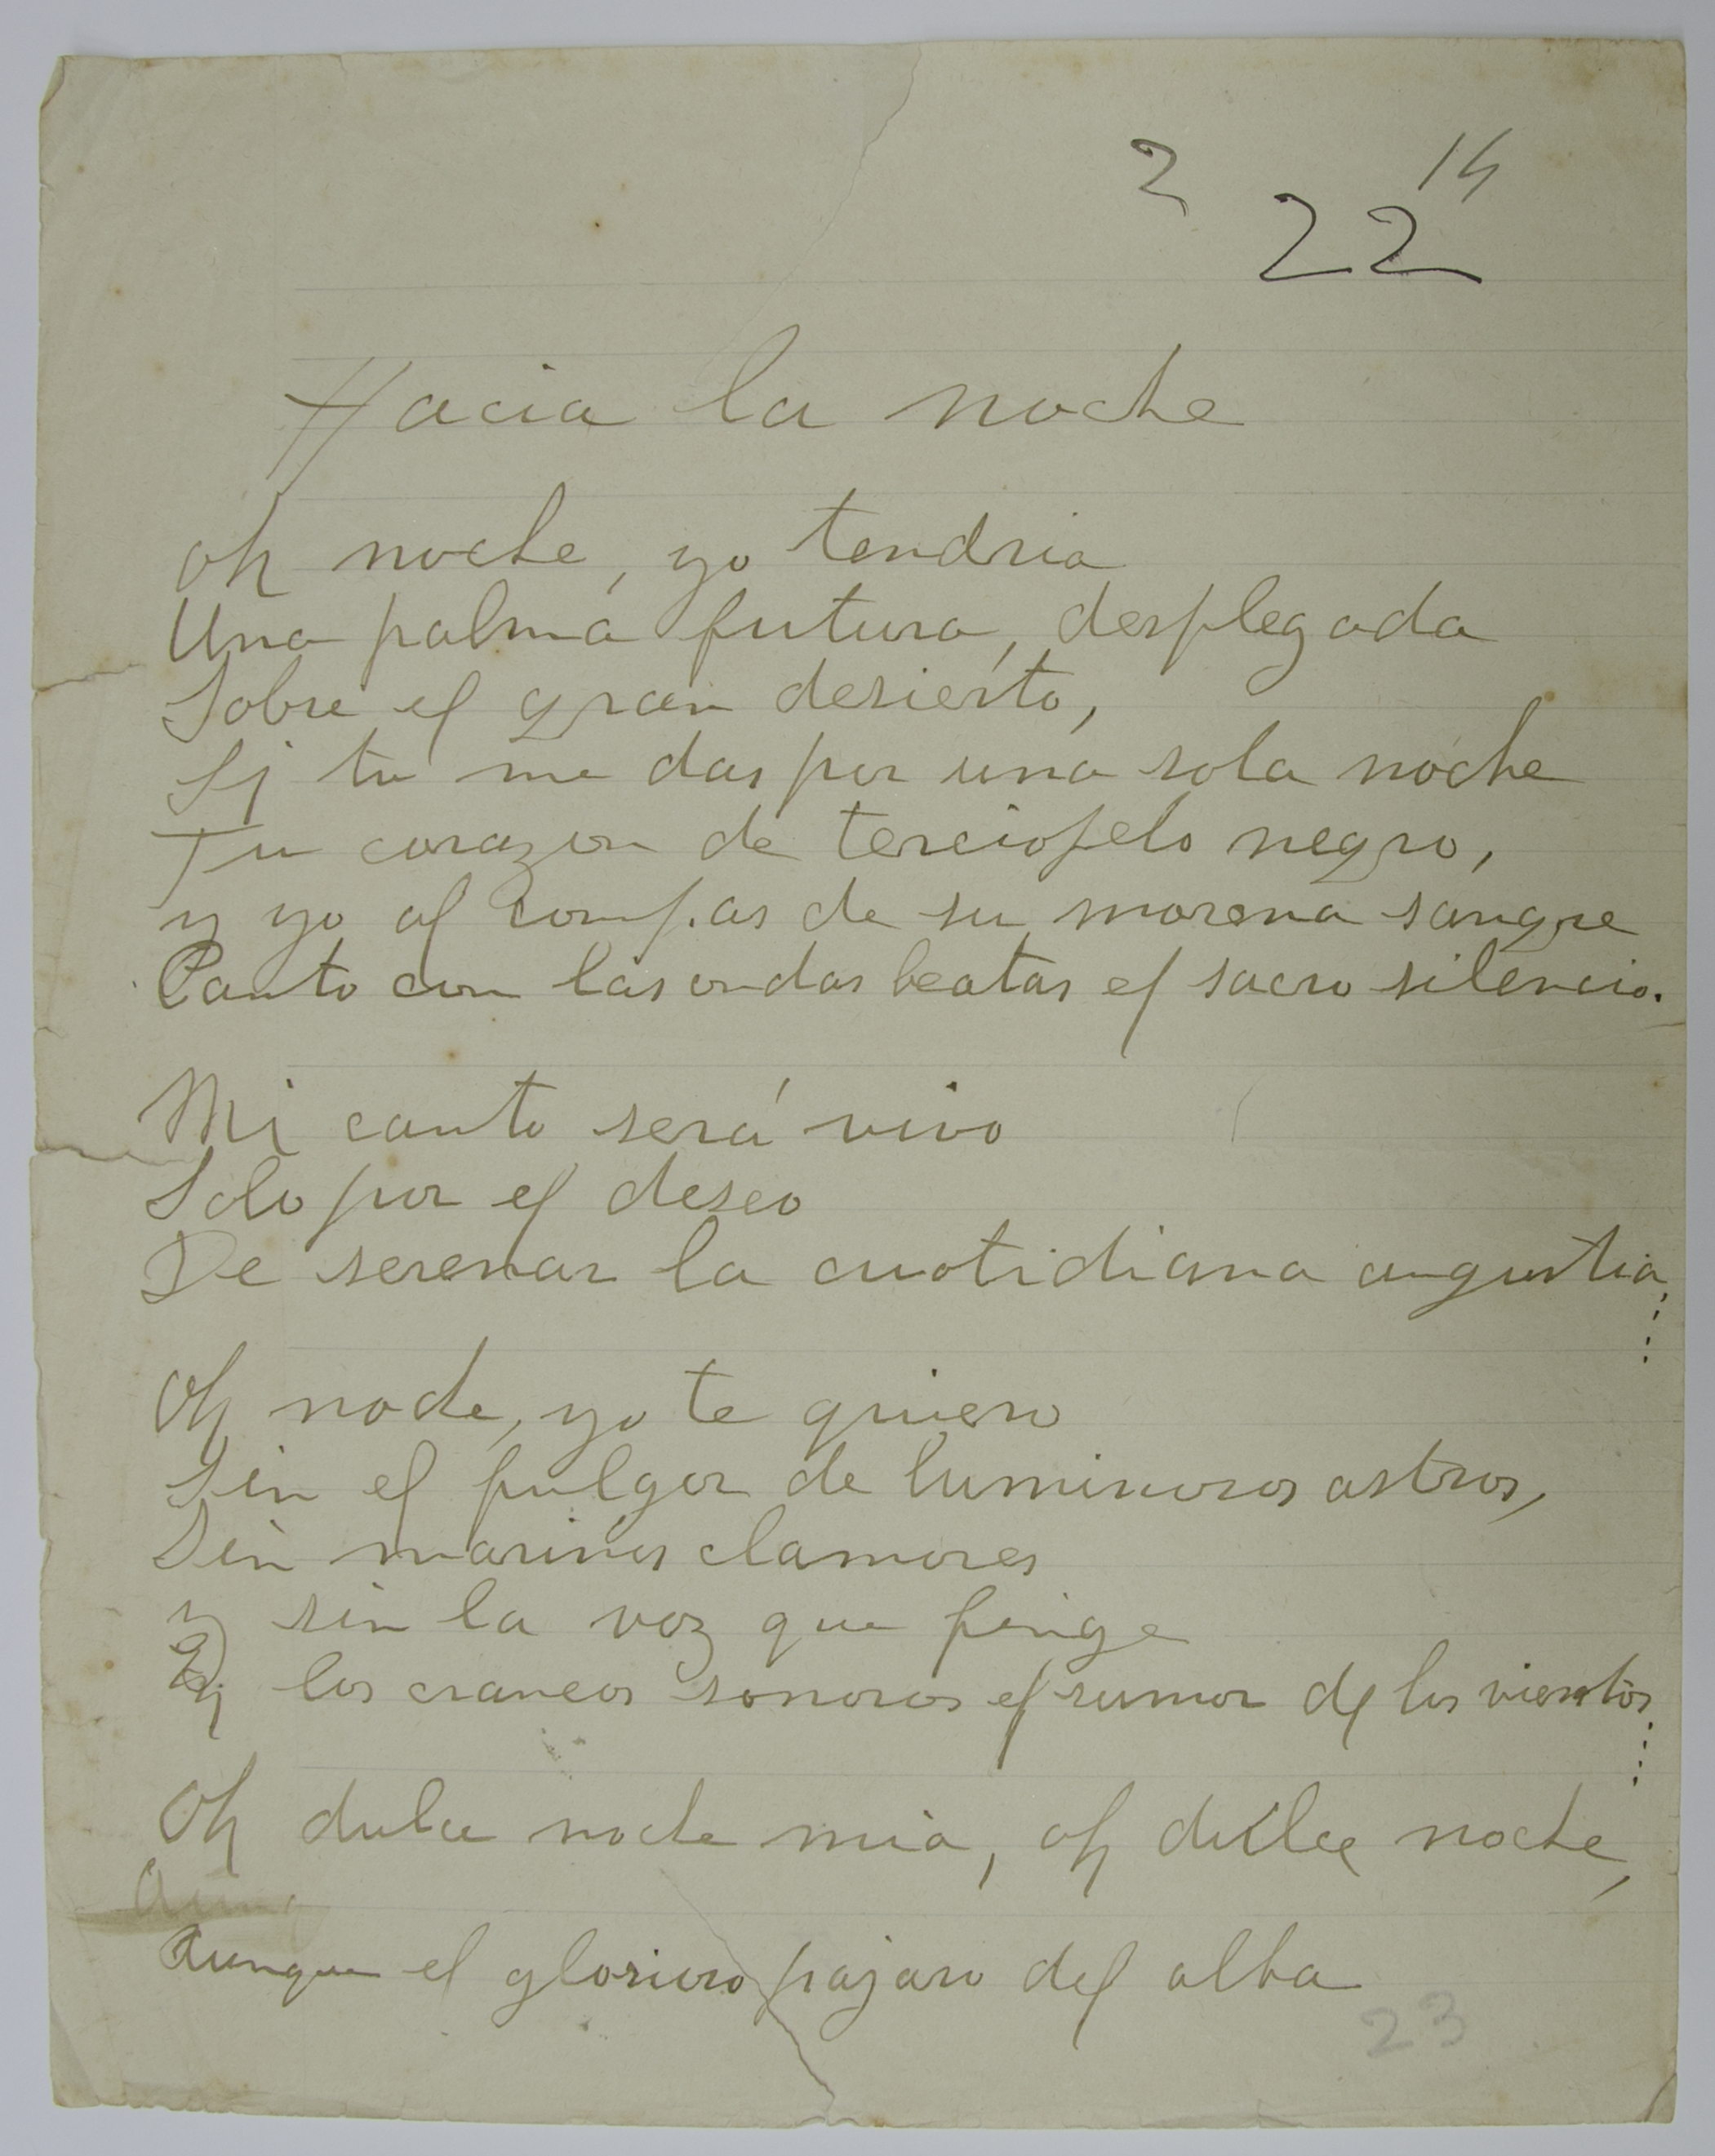 2
14
22
Hacia la noche
oh noche, yo tendria
Una palma futura, desplegada
Sobre el gran desierto,
Si tu me das por una sola noche
Tu corazon de terciopelo negro,
y yo al compas de su morena sangre
Canto con las ondas beatas el sacro silencio.
Mi canto será vivo
Solo por el deseo
De serenar la cuotidiana angustia,
Oh noche, yo te quiero
Sin el fulgor de luminosos astros,
Sin marinos clamores
y sin la voz que finge
los craneos sonoros el rumor de los vientos
Oh dulce noche mia, oh dulce noche,
Aunq
Aunque el glorioso pajaro del alba
23